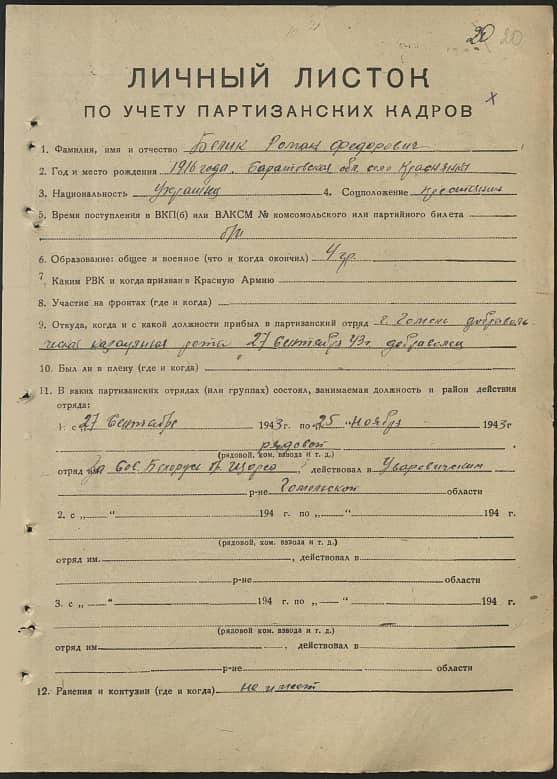 20 20
ЛИЧНЫЙ ЛИСТОК
ПО УЧЕТУ ПАРТИЗАНСКИХ КАДРОВ
х
1. Фамилия, имя и отчество Белик Роман Федорович
2. Год и место рождения 1916 года. обл. село
3. Национальность Украинец 4. Соцположение крестьянин
5. Время поступления в ВКП(б) или ВЛКСМ № комсомольского или партийного билета
б/п
6. Образование: общее и военное (что и когда окончил) 4 гр.
7. Каким РВК и когда призван в Красную Армию
8. Участие на фронтах (где и когда)
9. Откуда, когда и с какой должности прибыл в партизанский отряд г. Гомель
рота 27 Сентября 43 г. доброволец
10. Был ли в плену (где и когда)
11. В каких партизанских отрядах (или группах) состоял, занимаемая должность и район действия
отряда:
1. с „27 Сентября 1943 г. по „25 " ноября 1943 г
рядовой
(рядовой, ком. взвода и т. д.)
отряд им За Сов. Белорусь бр. Щорса, действовал в Уваровичским
р-не Гомельской области
2. с „ — " 194 г. по „ — " 194 г.
(рядовой, ком. взвода и т. д.)
отряд им. , действовал в
р-не области
3. с „ — " 194 г. по „ — " 194 г.
(рядовой, ком. взвода и т. д.)
отряд им , действовал в
р-не области
12. Ранения и контузии (где и когда) не имеет